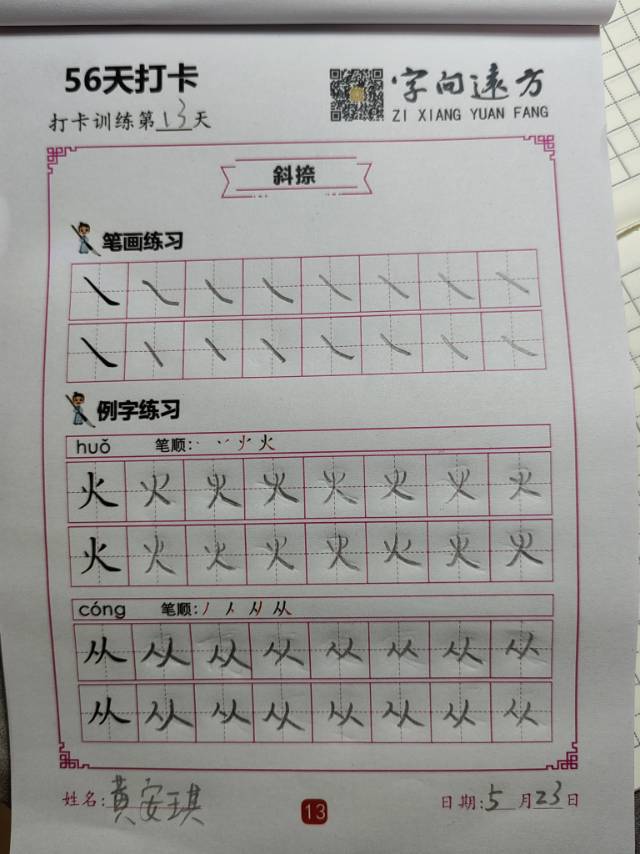 56天打卡
字向远方
打卡训练第13天
ZI XIANG YUAN FANG
斜捺
笔画练习
例字练习
huǒ 笔顺: 火
火 火 火 火 火 火 火 火
火 火 火 火 火 火 火 火
cóng 笔顺: 从
从 从 从 从 从 从 从 从
从 从 从 从 从 从 从 从
姓名: 黄安琪
13
日期: 5月23日